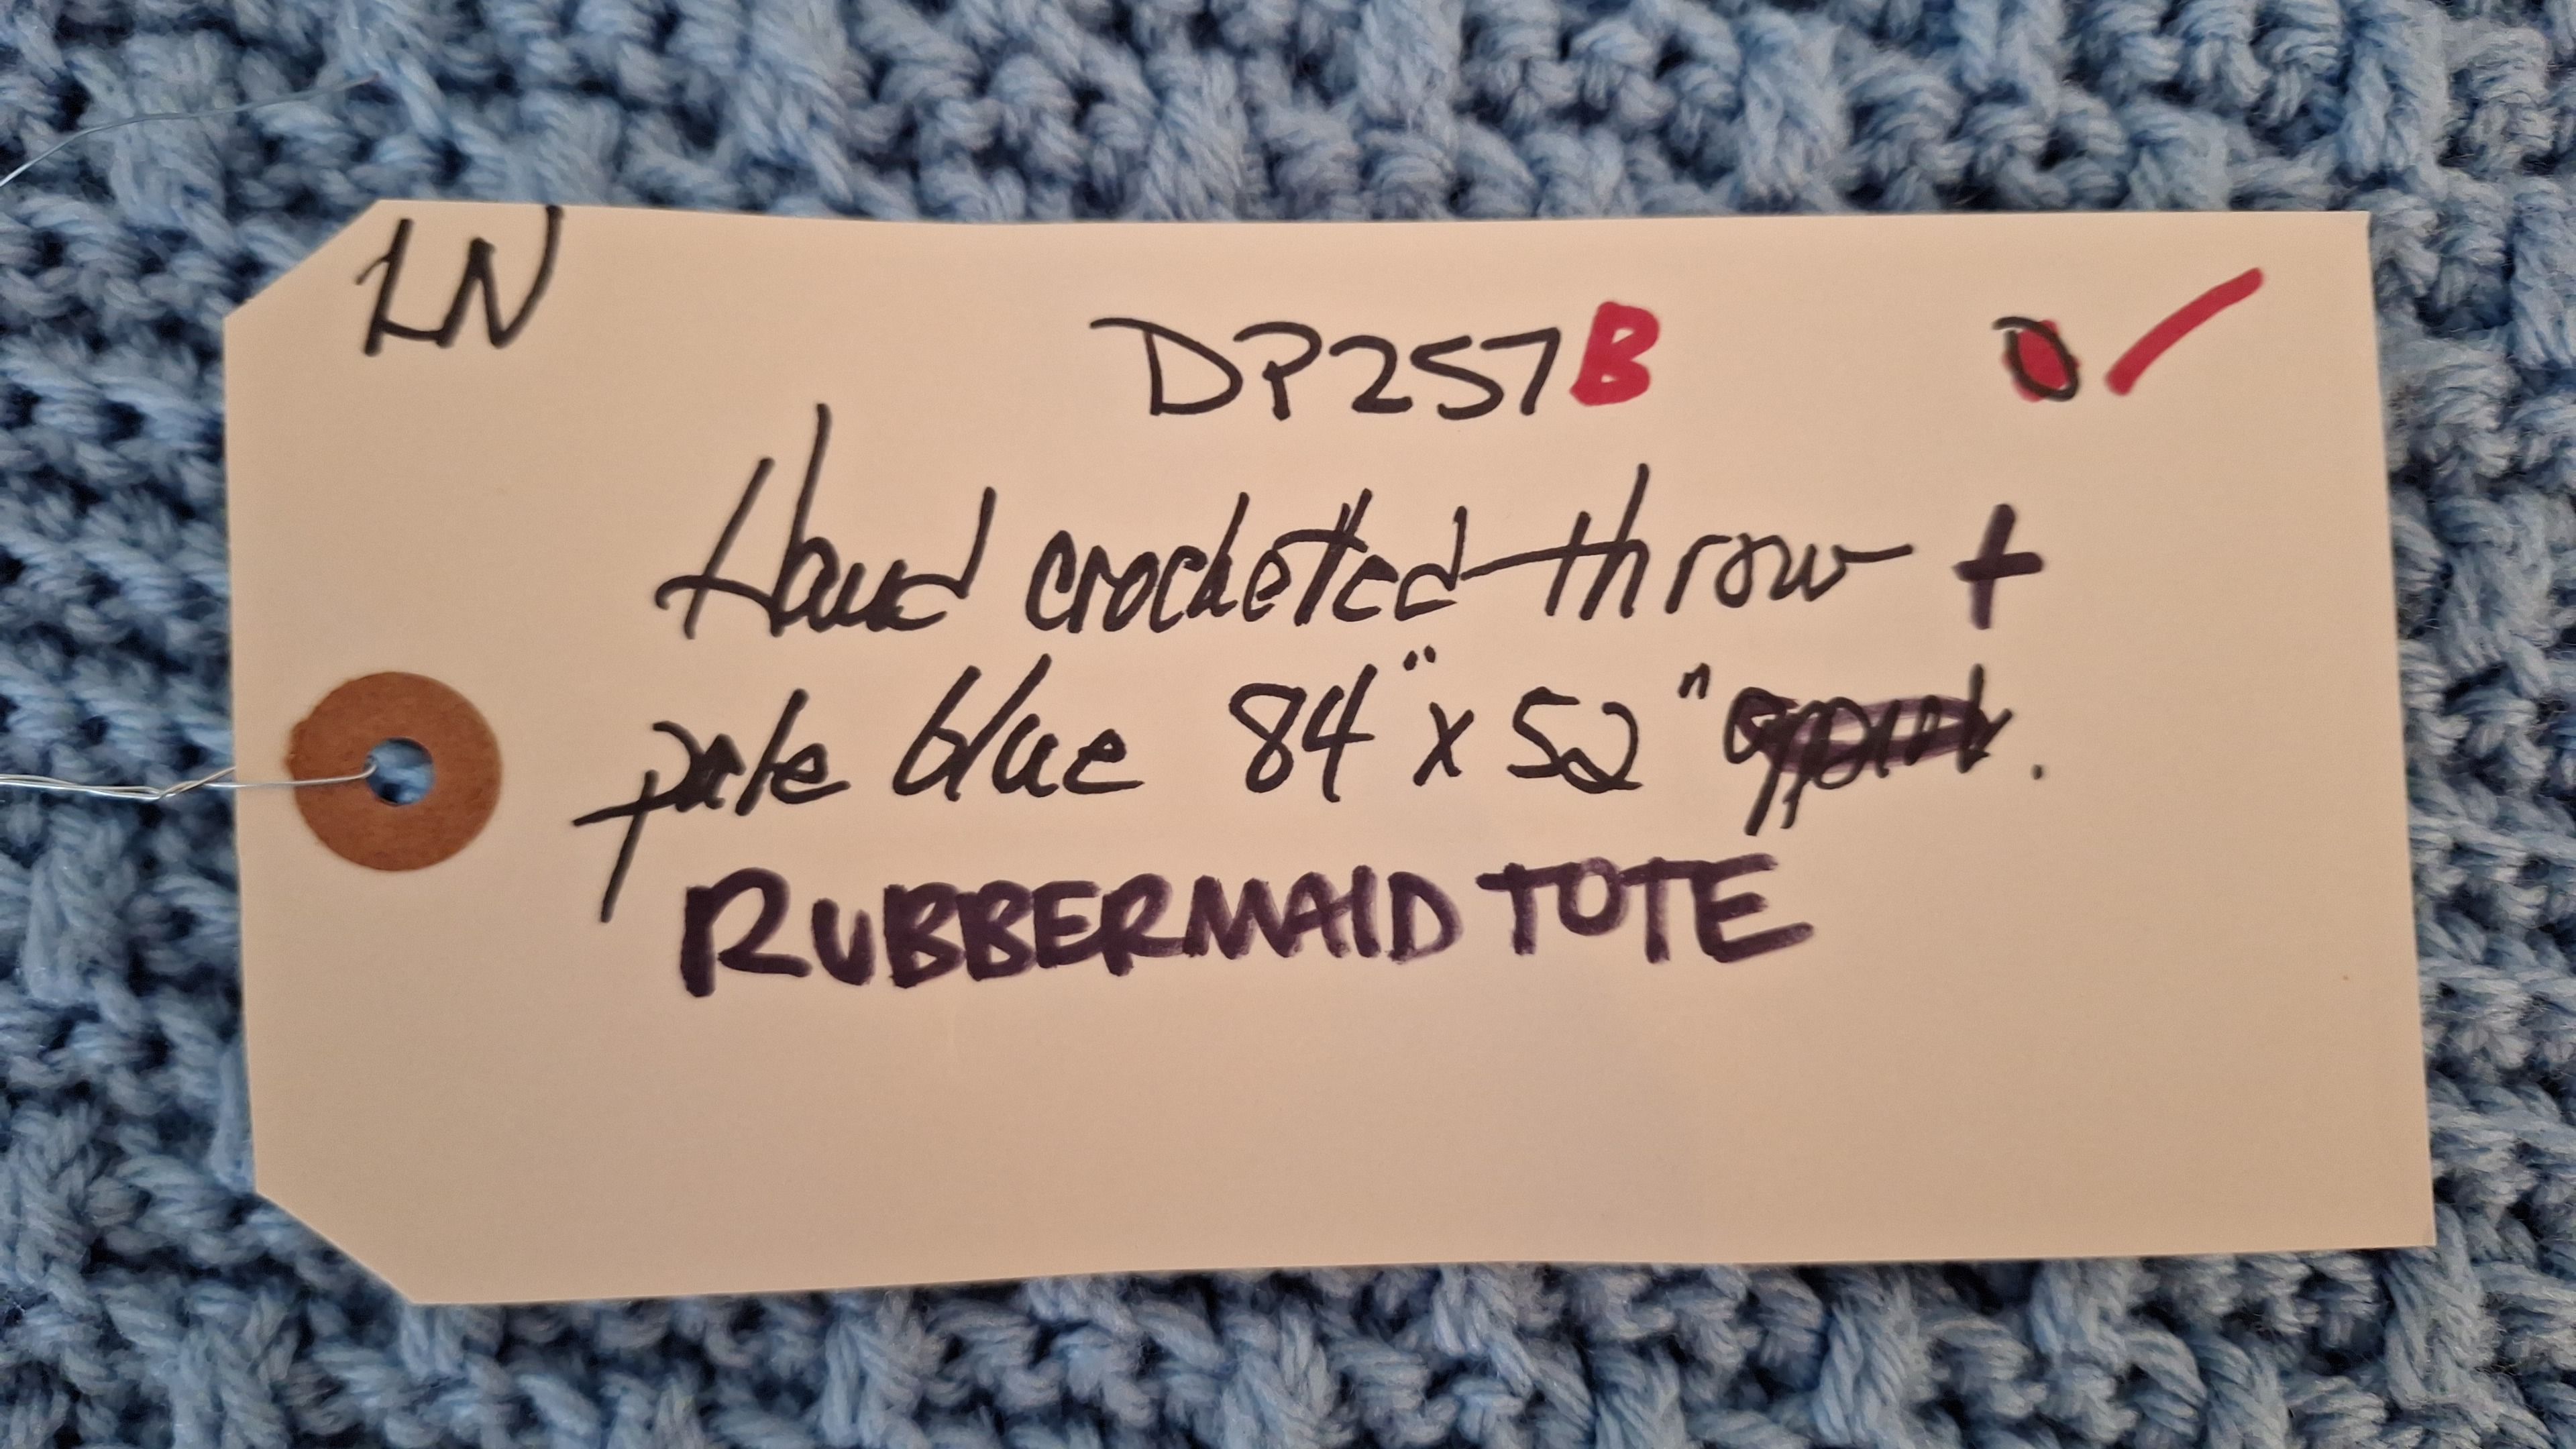 LN
DP257B ✓
Hand crocheted throw +
pale blue 84" x 52"
RUBBERMAID TOTE